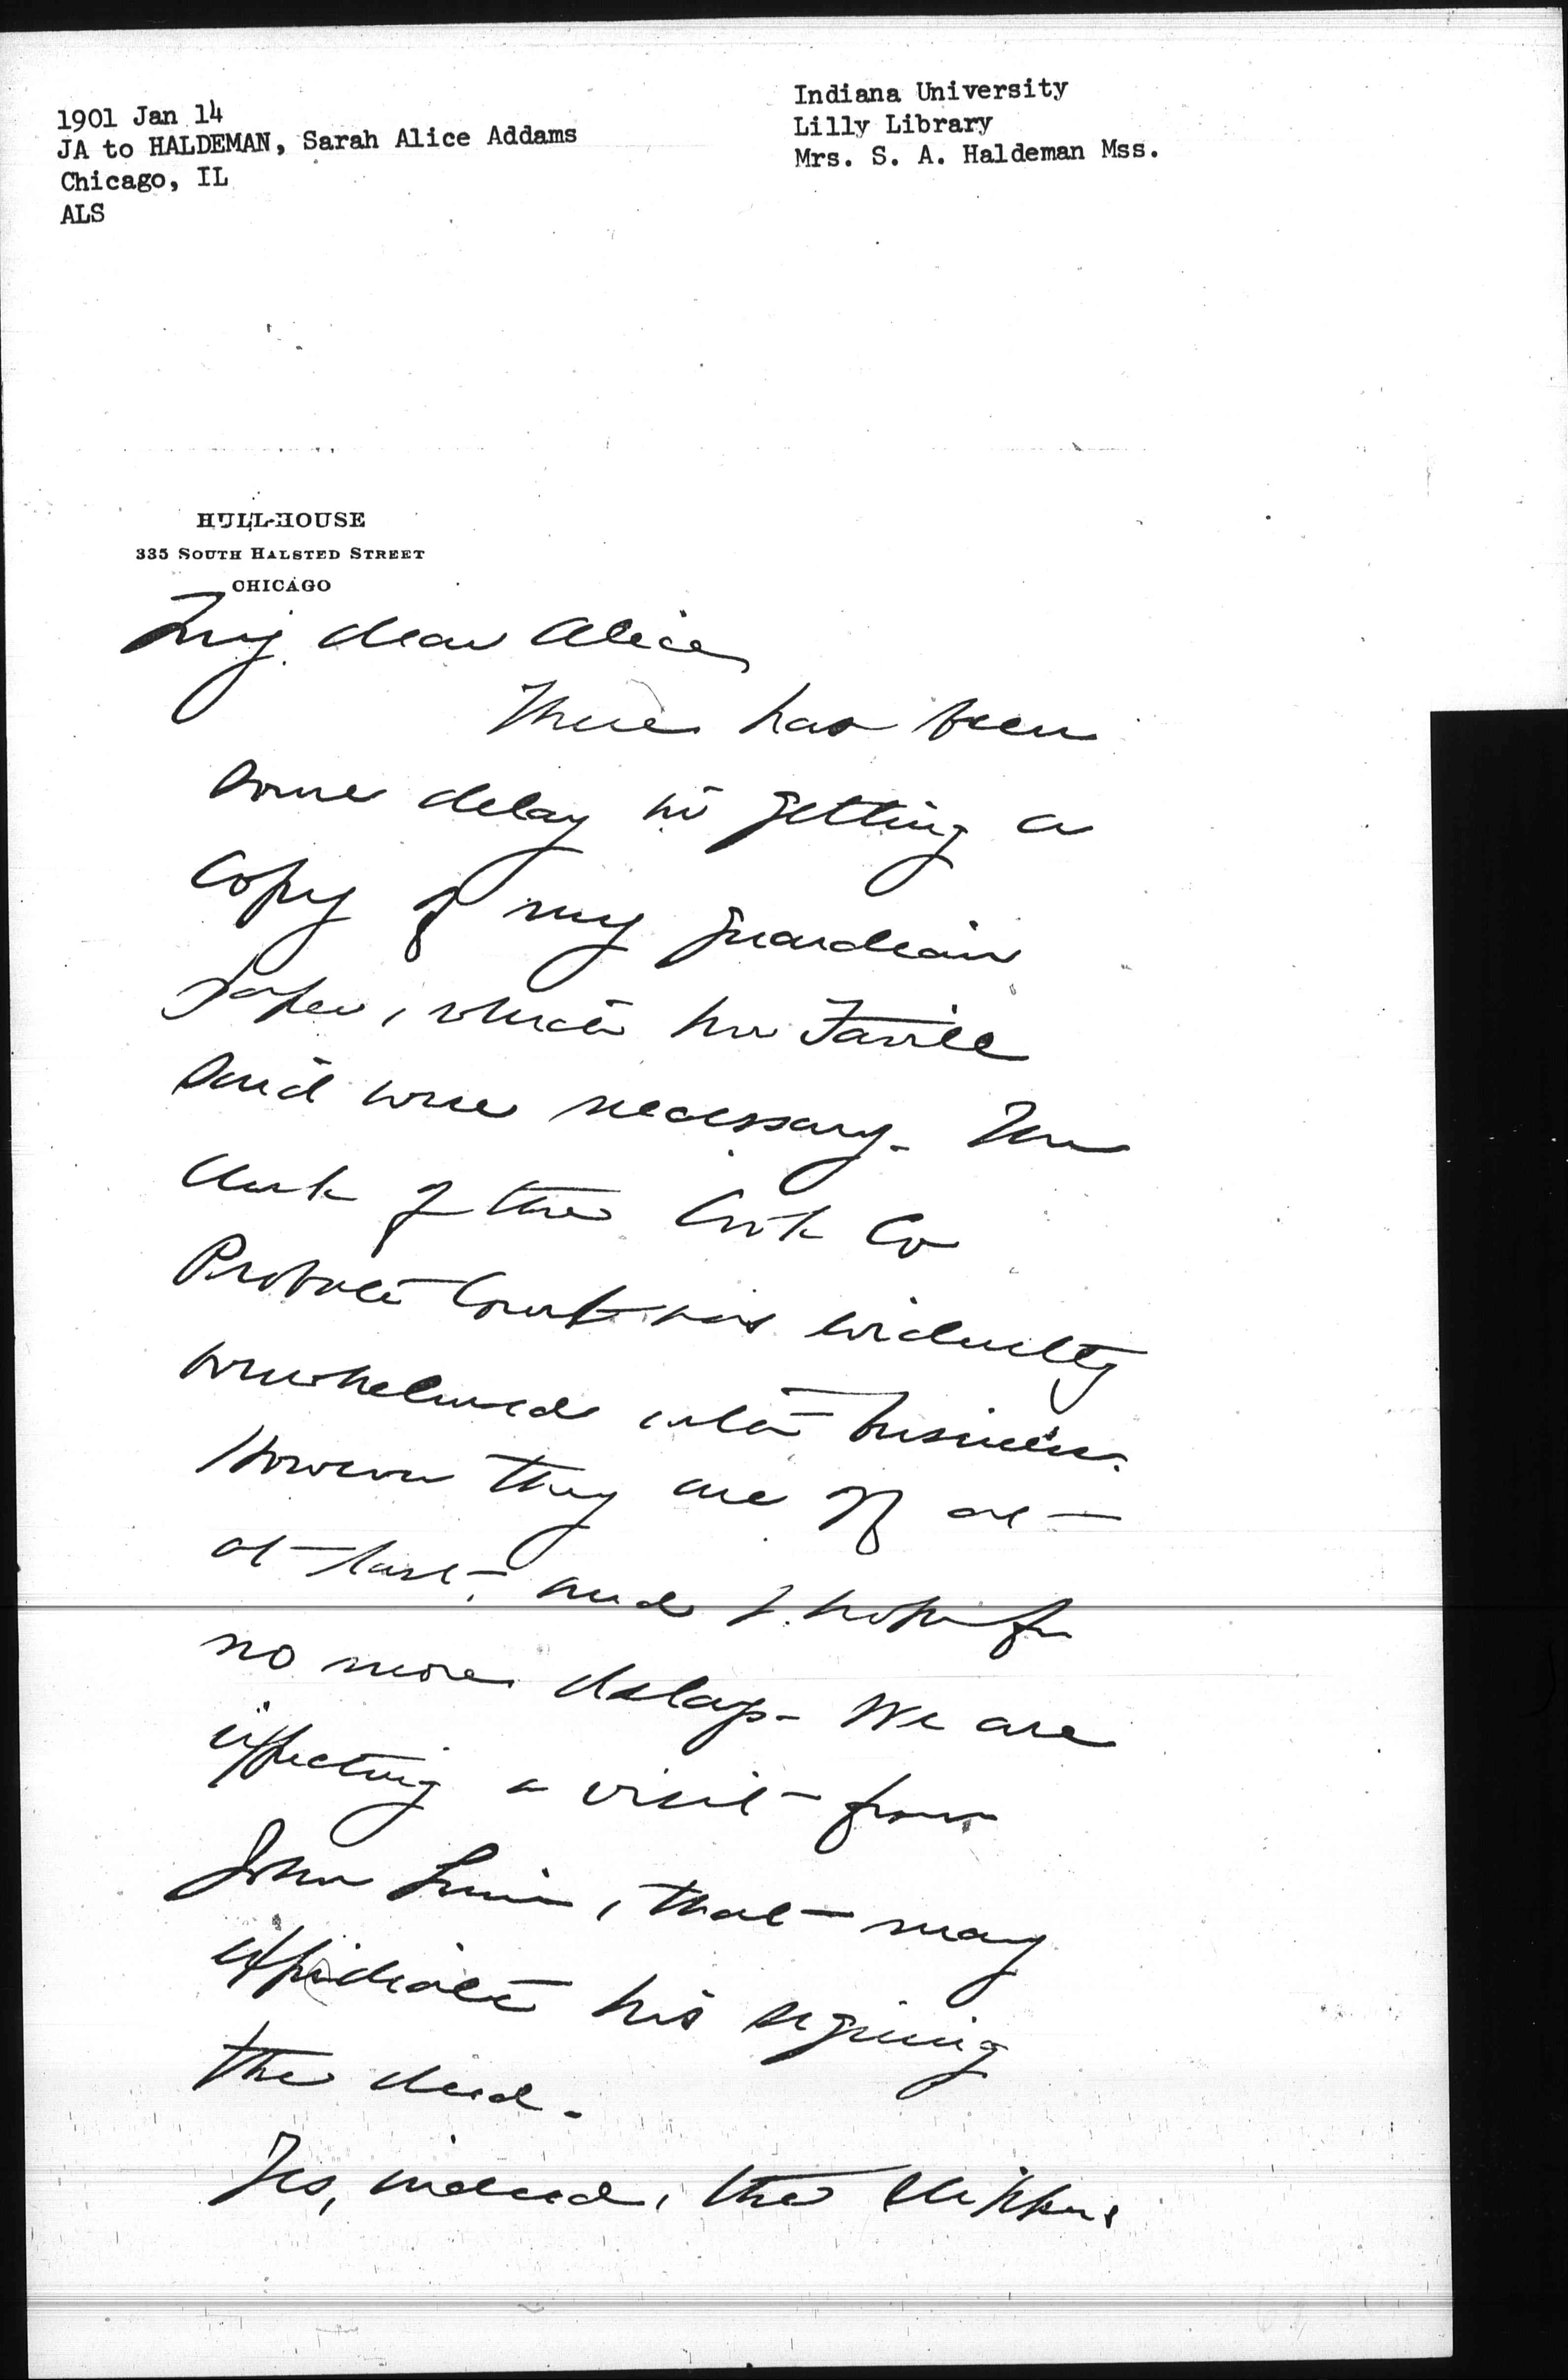 1901 Jan 14
JA to HALDEMAN, Sarah Alice Addams
Chicago, IL
ALS
Indiana University
Lilly Library
Mrs. S. A. Haldeman Mss.
HULL-HOUSE
335 SOUTH HALSTED STREET
CHICAGO
My dear Alice,
There has been
some delay in getting a
copy of my guardian
paper, which Mr
said were necessary. The
clerk of the Cook Co
Probate Court was evidently
overwhelmed with business.
However they are off at
at last, and I hope for
no more delay - We are
expecting a visit from
John Linn, that may
his signing
the deed.
Yes, indeed, the slippers